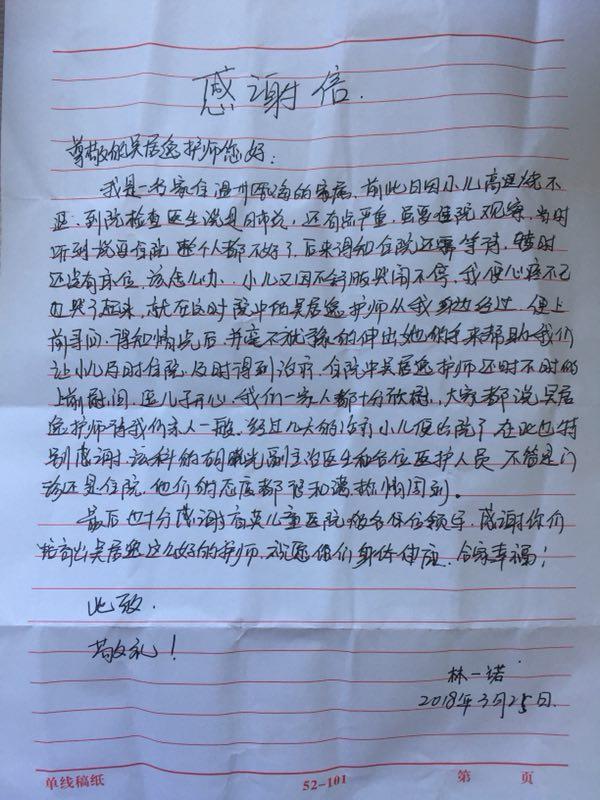 感谢信.
尊敬的吴居逸护师您好：
我是一名家住温州瓯海的家属，前些日因小儿高退烧不
退，到院检查医生说是肺炎，还有点严重，需要住院观察，当时
听到说要住院整个人都不好了，后来得知住院还需等待，暂时
还没有床位，该怎么办，小儿又因不舒服哭闹不停，我便心疼不已
也哭了起来，就在这时院中的吴居逸护师从我身边经过，便上
前寻问，得知情况后，并毫不犹豫的伸出她的手来帮助我们
让小儿及时住院，及时得到治疗，住院中吴居逸护师还时不时的
上前慰问，逗儿子开心，我们一家人都十分欣慰，大家都说吴居
逸护师待我们亲人一般，经过几天的治疗小儿便出院了在此也特
别感谢该科的胡晓光副主治医生和各位医护人员，不管是门
诊还是住院，他们的态度都很和蔼热情周到。
最后也十分感谢育英儿童医院的各位领导，感谢你们
培育出吴居逸这么好的护师，祝愿他们身体健康，合家幸福！
此致.
敬礼！
林一诺.
2018年3月25日.
单线稿纸 52-101 第 页